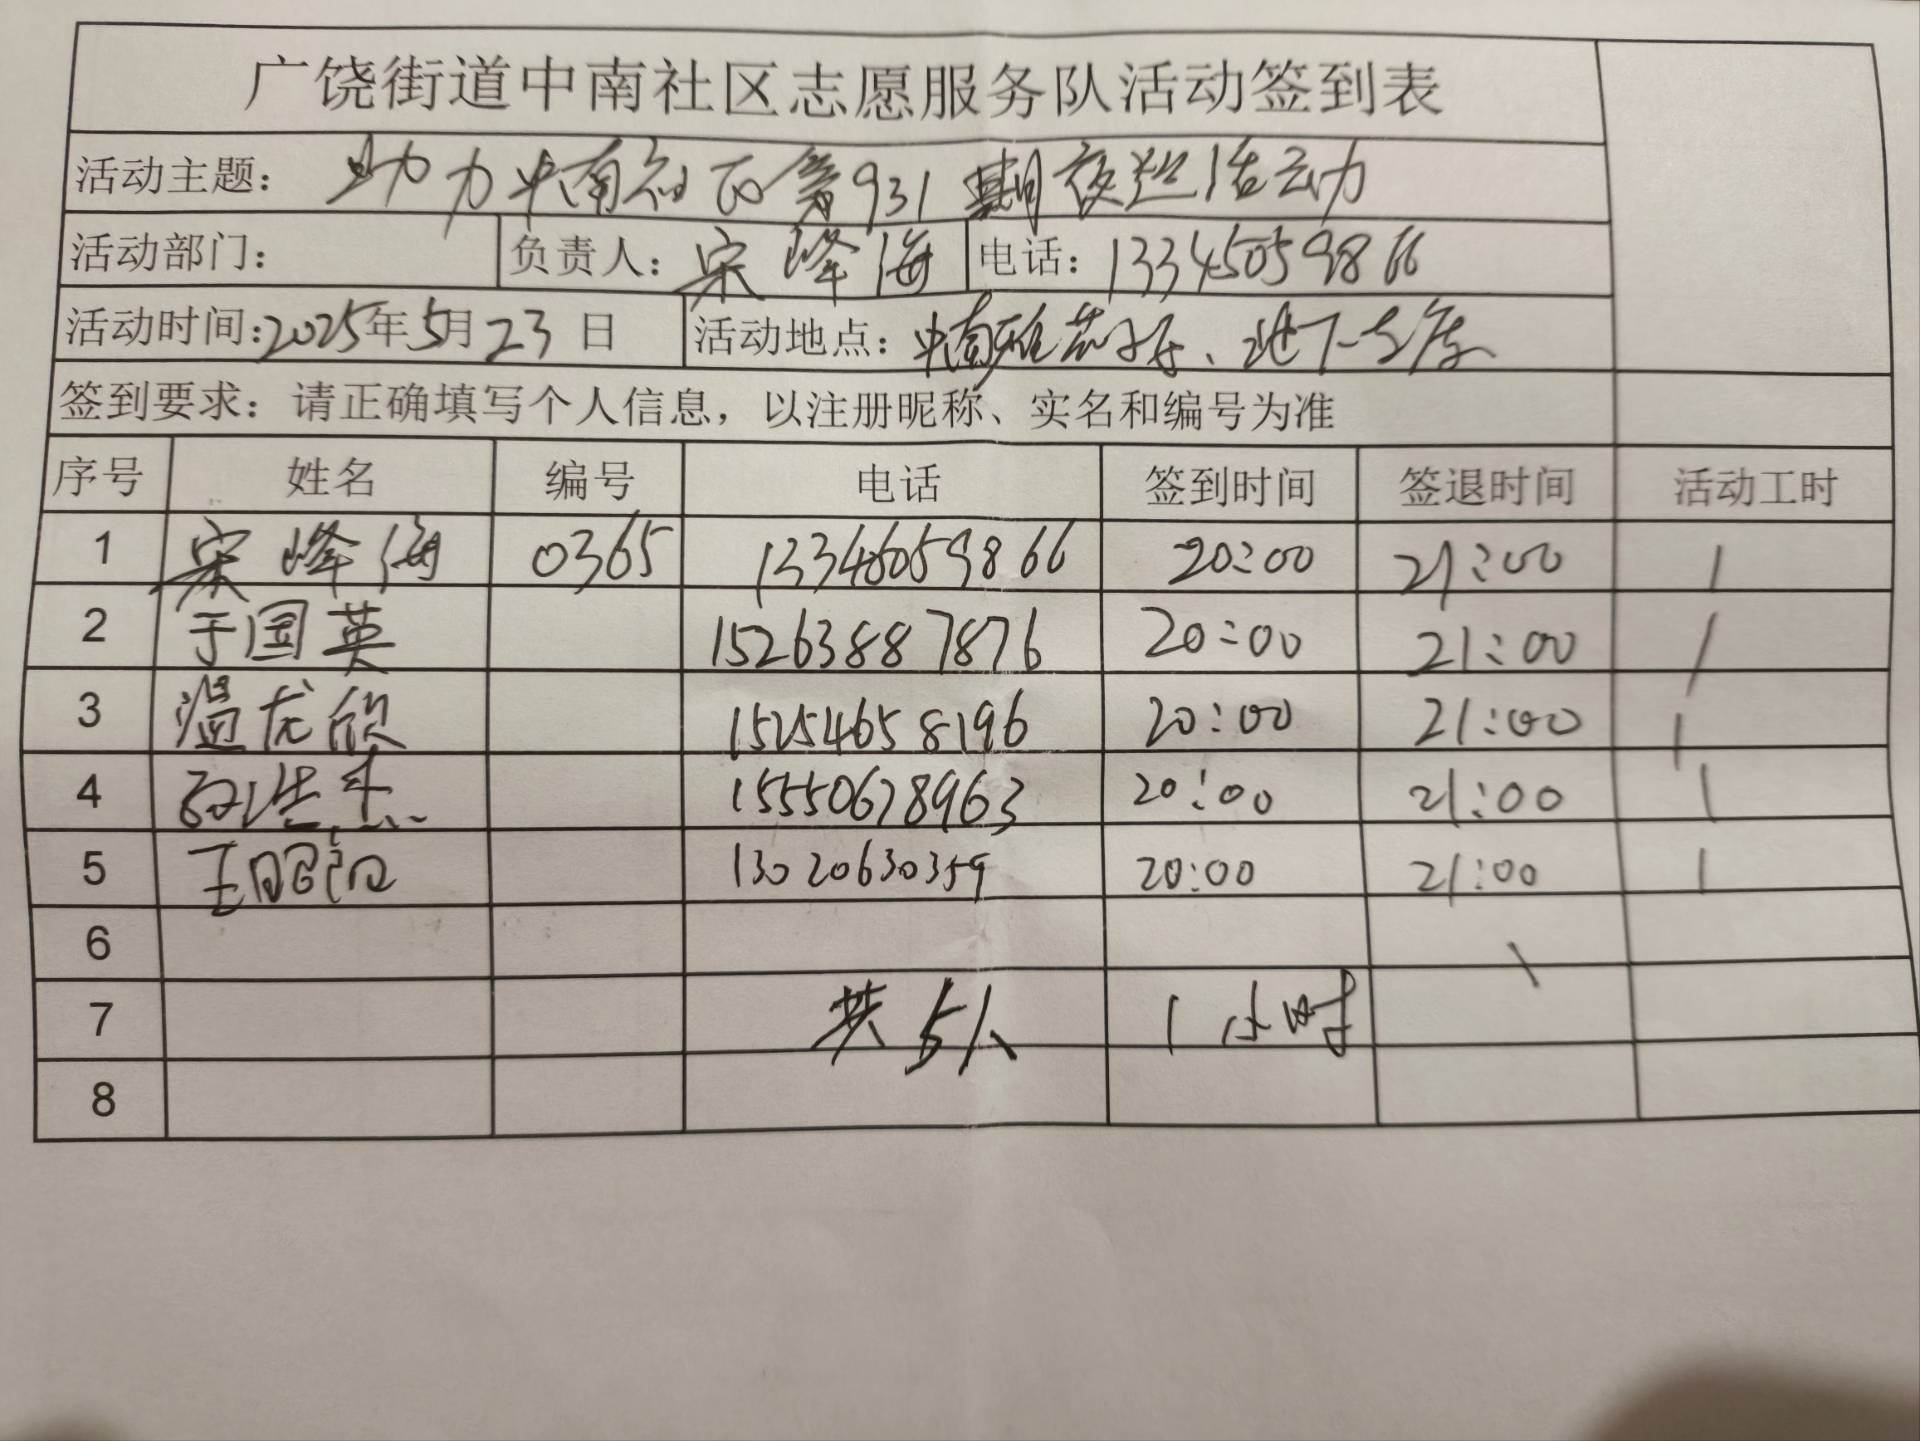 广饶街道中南社区志愿服务队活动签到表
活动主题：助力中南社区第931期夜巡活动
活动部门： 负责人：宋峰海 电话：13345059866
活动时间：2025年5月23日 活动地点：中南、地下车库
签到要求：请正确填写个人信息，以注册昵称、实名和编号为准
序号 姓名 编号 电话 签到时间 签退时间 活动工时
1 宋峰海 0365 13346059866 20:00 21:00 1
2 于国英 15263887876 20:00 21:00 1
3 温龙欣 15254658196 20:00 21:00 1
4 15550678963 20:00 21:00 1
5 王昭阳 13020630359 20:00 21:00 1
6
7 共5人 1小时
8